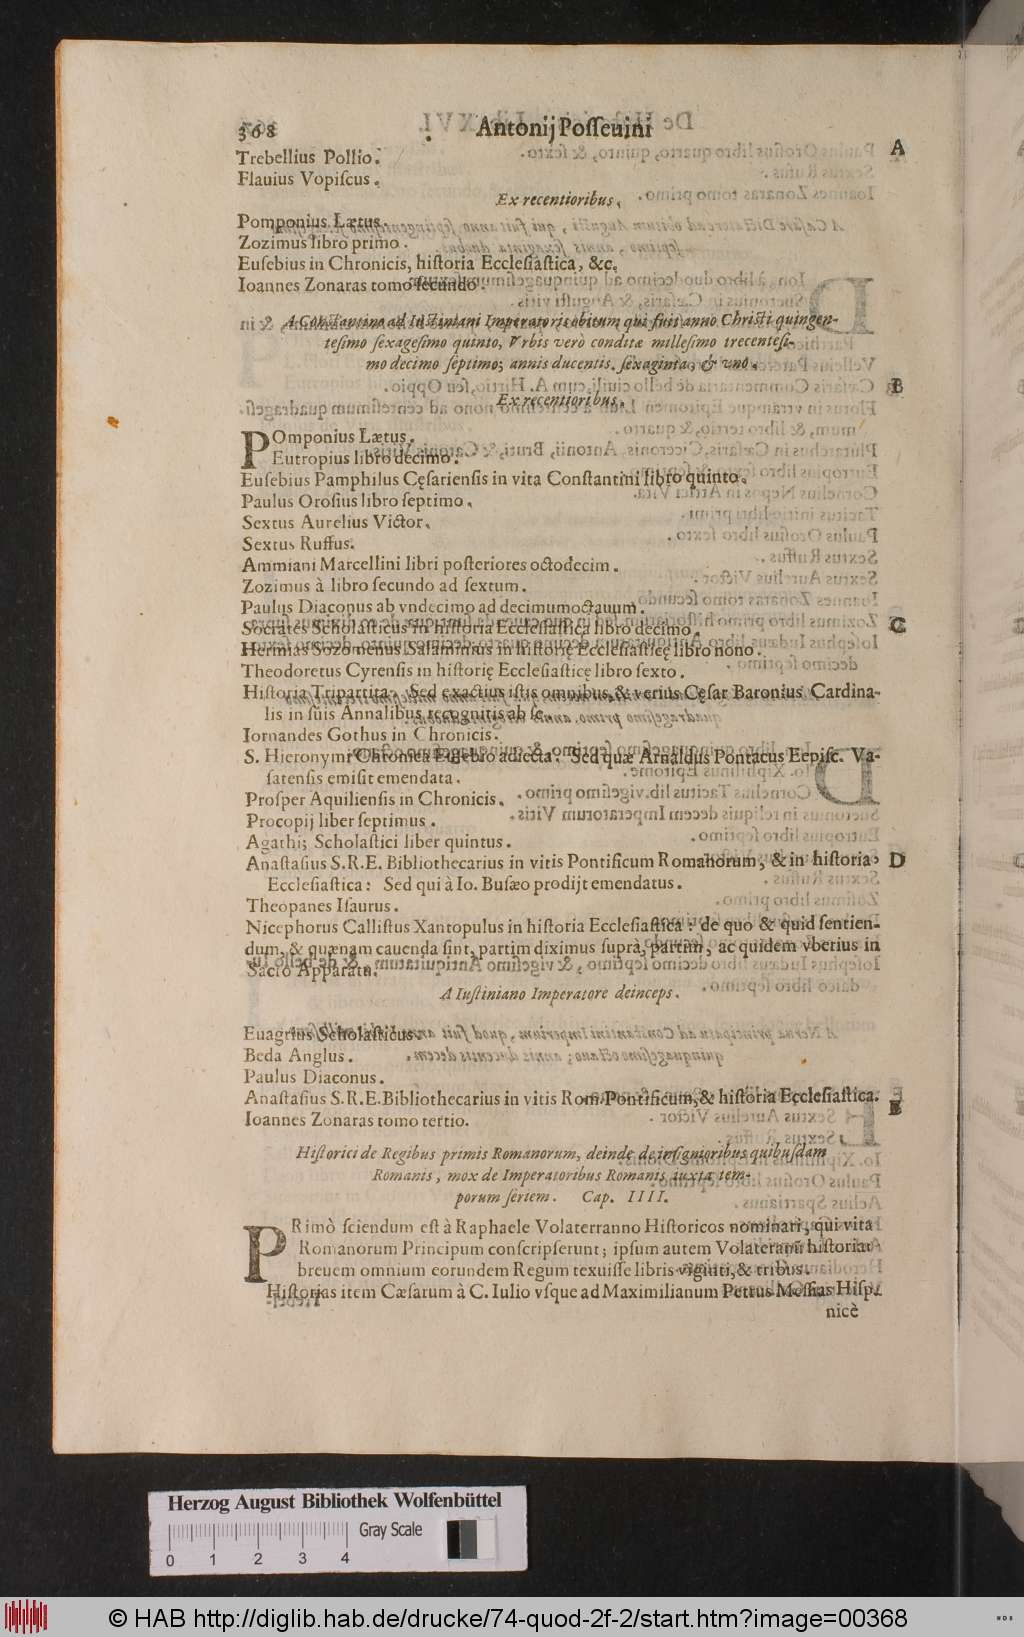 368 Antonij Posseuini
Trebellius Pollio.
Flauius Vopiscus.
Ex recentioribus.
Pomponius Lætus.
Zozimus libro primo.
Eusebius in Chronicis, historia Ecclesiastica, &c.
Ioannes Zonaras tomo secundo.
A Constantino ad Iustiniani Imperatoris obitum qui fuit anno Christi quingen-
tesimo sexagesimo quinto, Vrbis verò conditæ millesimo trecentesi-
mo decimo septimo; annis ducentis. sexaginta, & vno.
Ex recentioribus.
POmponius Lætus.
Eutropius libro decimo.
Eusebius Pamphilus Cęsariensis in vita Constantini libro quinto.
Paulus Orosius libro septimo.
Sextus Aurelius Victor.
Sextus Ruffus.
Ammiani Marcellini libri posteriores octodecim.
Zozimus à libro secundo ad sextum.
Paulus Diaconus ab vndecimo ad decimumoctauum.
Socrates Scholasticus in historia Ecclesiastica libro decimo.
Hermias Sozomenus Salaminius in historię Ecclesiasticę libro nono.
Theodoretus Cyrensis in historię Ecclesiasticę libro sexto.
Historia Tripartita. Sed exactius istis omnibus & verius Cęsar Baronius Cardina-
lis in suis Annalibus recognitis ab se.
Iornandes Gothus in Chronicis.
S. Hieronymi Chronica Eusebio adiecta. Sed quæ Arnaldus Pontacus Eepisc. Va-
satensis emisit emendata.
Prosper Aquiliensis in Chronicis.
Procopij liber septimus.
Agathi; Scholastici liber quintus.
Anastasius S.R.E. Bibliothecarius in vitis Pontificum Romanorum, & in historia
Ecclesiastica: Sed qui à Io. Busæo prodijt emendatus.
Theopanes Isaurus.
Nicephorus Callistus Xantopulus in historia Ecclesiastica: de quo & quid sentien-
dum, & quænam cauenda sint, partim diximus suprà, partim, ac quidem vberius in
Sacro Apparatu.
A Iustiniano Imperatore deinceps.
Euagrius Scholasticus.
Beda Anglus.
Paulus Diaconus.
Anastasius S.R.E. Bibliothecarius in vitis Rom. Pontificum, & historia Ecclesiastica.
Ioannes Zonaras tomo tertio.
Historici de Regibus primis Romanorum, deinde de insignioribus quibusdam
Romanis, mox de Imperatoribus Romanis iuxta tem-
porum seriem. Cap. IIII.
PRimò sciendum est à Raphaele Volaterranno Historicos nominari, qui vita
Romanorum Principum conscripserunt; ipsum autem Volateranũ historiar
breuem omnium eorundem Regum texuisse libris viginti, & tribus.
Historias item Cæsarum à C. Iulio vsque ad Maximilianum Petrus Messias Hisp
nicè
A
B
C
D
E
Herzog August Bibliothek Wolfenbüttel
Gray Scale
0 1 2 3 4
© HAB http://diglib.hab.de/drucke/74-quod-2f-2/start.htm?image=00368